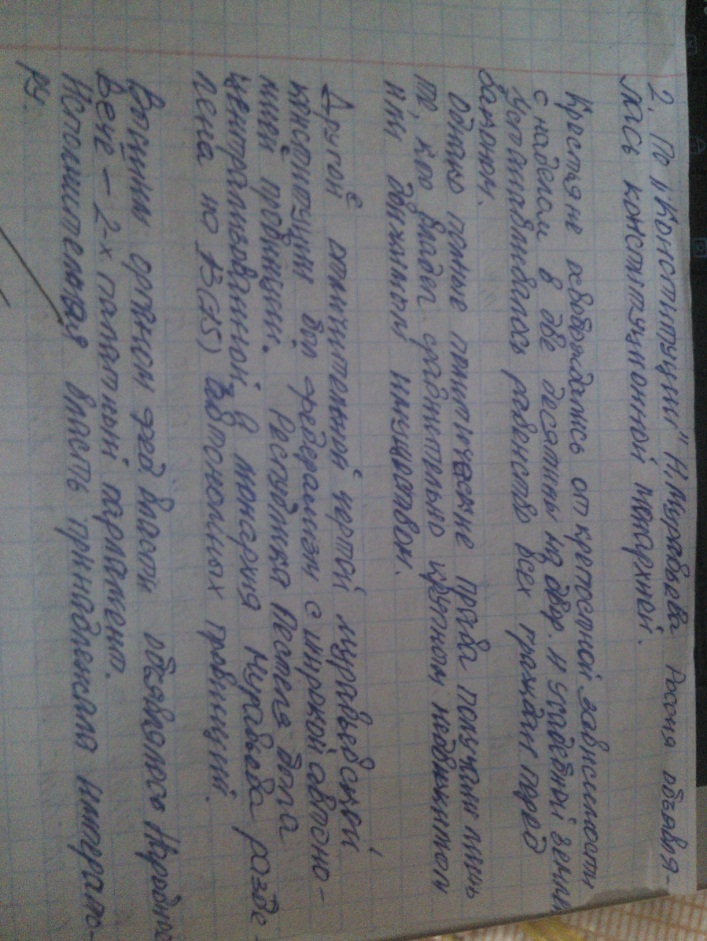 2. По "Конституции" Н. Муравьева Россия объявля-
лась конституционной монархией.
Крестьяне освобождались от крепостной зависимости
с наделом в две десятины на двор. и усадебной земли
Устанавливалось равенство всех граждан перед
законом.
Однако полные политические права получали лишь
те, кто владел сравнительно крупным недвижимым
или движимым имуществом.
Другой отличительной чертой муравьевской
конституции был федерализм с широкой автоно-
мией провинции. Республика Пестеля была
централизованной, а монархия Муравьева разде-
лена на 13 (15) автономных провинций.
Высшим органом фед власти объявлялось Народное
Вече – 2-х палатный парламент.
Исполнительная власть принадлежала императо-
ру.